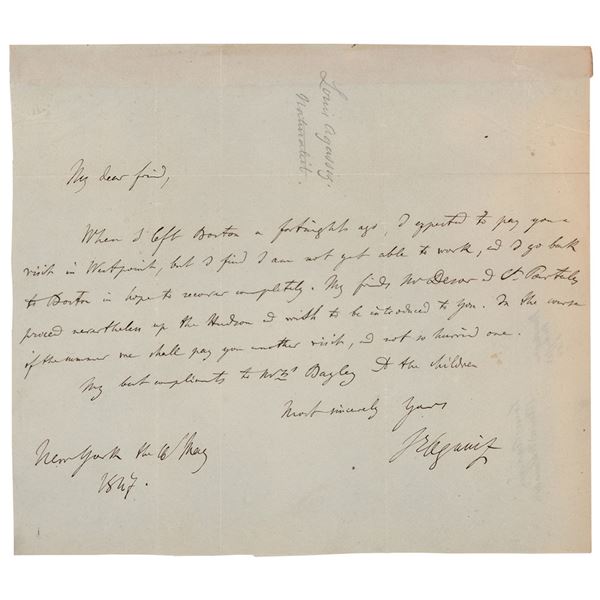 Louis Agassiz.
Naturalist.
My dear friend,
When I left Boston a fortnight ago, I expected to pay you a
visit in Westpoint, but I find I am not yet able to work, and I go back
to Boston in hope to recover completely. My friends Mr Desor and
proceed nevertheless up the Hudson and wish to be introduced to you. In the course
of the summer we shall pay you another visit, and not so hurried one.
My best compliments to Bayley & the children
Most sincerely Yours
Ls Agassiz
New York the 6 May
1847.